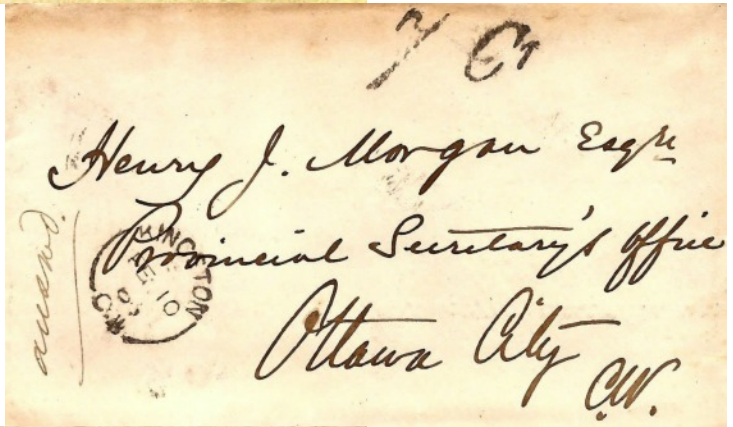 7 Cts
Henry J. Morgan Esqre
Provincial Secretary's Office
Ottawa City
C.W.
answd.
KINGSTON
DE 10
C.W